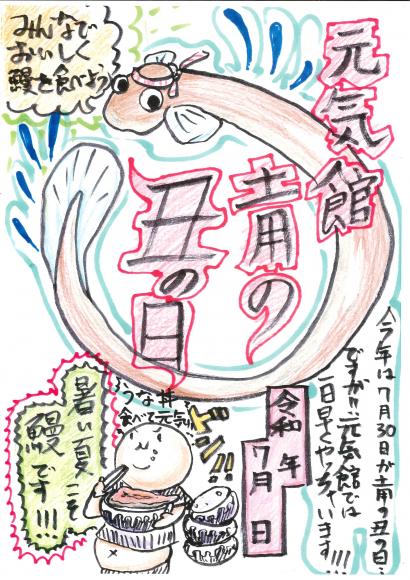 みんなで
おいしく
鰻を食べよう
元気館
土用の
丑の日
今年は7月30日が土用の丑の日
ですが!!元気館では
一日早くやっちゃいます!!!
令和 年
7月 日
うな丼
食べて元気!!
ドン!!
暑い夏こそ
鰻
です!!!